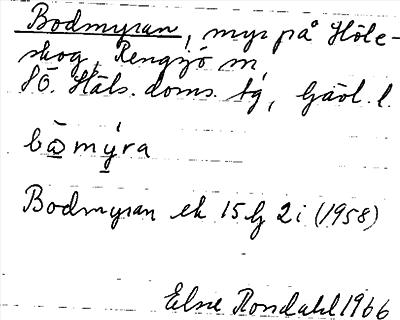 Bodmyran, myr på Höle-
skog, Rengsjö sn,
SÖ. Häls. doms. tg, Gävl. l.
bɷ̀mýra
Bodmyran ek 15G 2i (1958)
Elsie Rondahl 1966